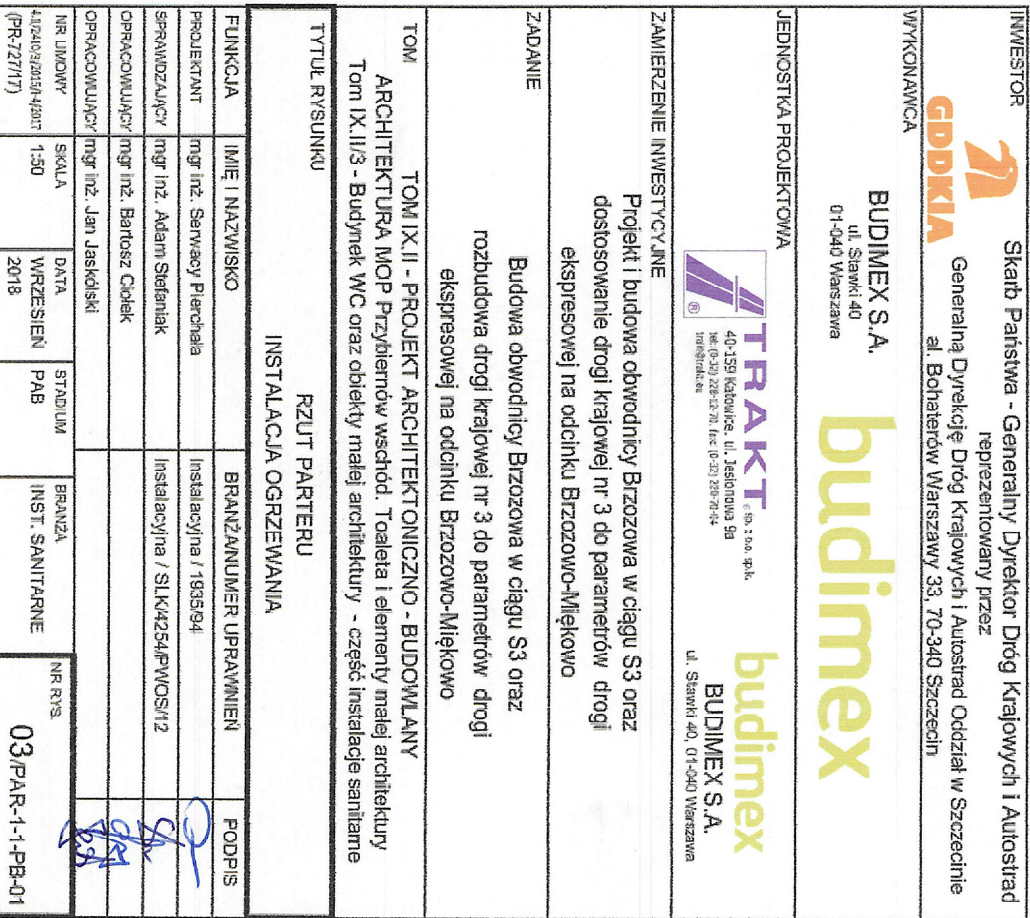 INWESTOR
Skarb Państwa - Generalny Dyrektor Dróg Krajowych i Autostrad
reprezentowany przez
Generalną Dyrekcję Dróg Krajowych i Autostrad Oddział w Szczecinie
al. Bohaterów Warszawy 33, 70-340 Szczecin
GDDKIA
WYKONAWCA
BUDIMEX S.A.
ul. Stawki 40
01-040 Warszawa
budimex
JEDNOSTKA PROJEKTOWA
TRAKT sp. z o.o. sp.k.
40-159 Katowice, ul. Jesionowa 9a
budimex
BUDIMEX S.A.
ul. Stawki 40, 01-040 Warszawa
ZAMIERZENIE INWESTYCYJNE
Projekt i budowa obwodnicy Brzozowa w ciągu S3 oraz
dostosowanie drogi krajowej nr 3 do parametrów drogi
ekspresowej na odcinku Brzozowo-Miękowo
ZADANIE
Budowa obwodnicy Brzozowa w ciągu S3 oraz
rozbudowa drogi krajowej nr 3 do parametrów drogi
ekspresowej na odcinku Brzozowo-Miękowo
TOM
TOM IX.II - PROJEKT ARCHITEKTONICZNO - BUDOWLANY
ARCHITEKTURA MOP Przybiernów wschód. Toaleta i elementy małej architektury
Tom IX.II/3 - Budynek WC oraz obiekty małej architektury - część instalacje sanitarne
TYTUŁ RYSUNKU
RZUT PARTERU
INSTALACJA OGRZEWANIA
FUNKCJA IMIĘ I NAZWISKO BRANŻA/NUMER UPRAWNIEŃ PODPIS
PROJEKTANT mgr inż. Serwacy Pierchała Instalacyjna / 1935/94
SPRAWDZAJĄCY mgr inż. Adam Stefaniak Instalacyjna / SLK/4254/PWOS/12
OPRACOWUJĄCY mgr inż. Bartosz Ciołek
OPRACOWUJĄCY mgr inż. Jan Jaskólski
NR UMOWY SKALA DATA STADIUM BRANŻA NR RYS.
1:50 WRZESIEŃ PAB INST. SANITARNE 03/PAR-1-1-PB-01
(PR-727/17) 2018